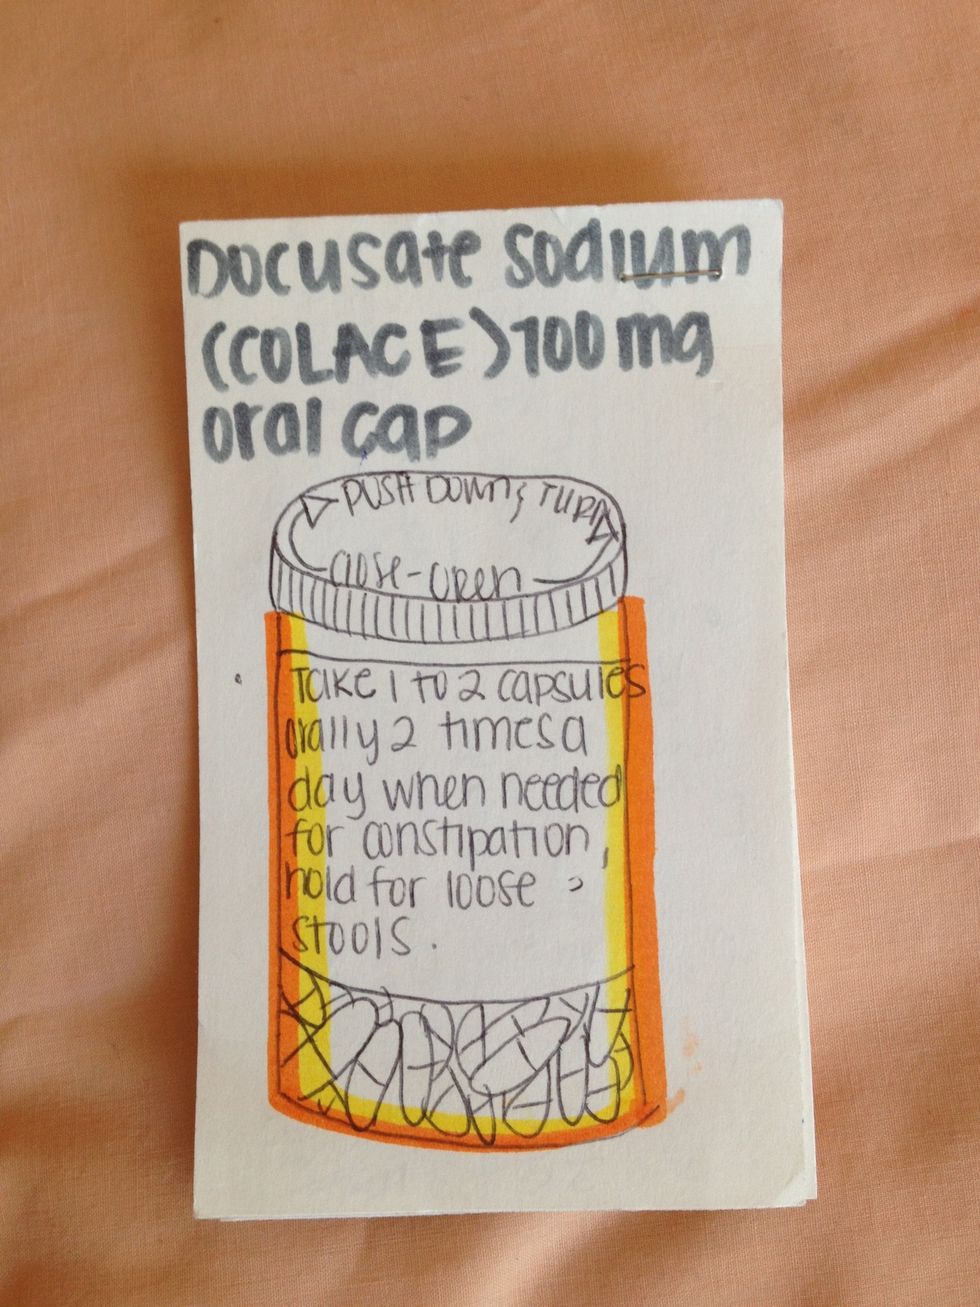 Docusate Sodium
(COLACE) 100 mg
oral cap
PUSH DOWN & TURN
Close - OPEN
Take 1 to 2 capsules
orally 2 times a
day when needed
for constipation,
hold for loose
stools.